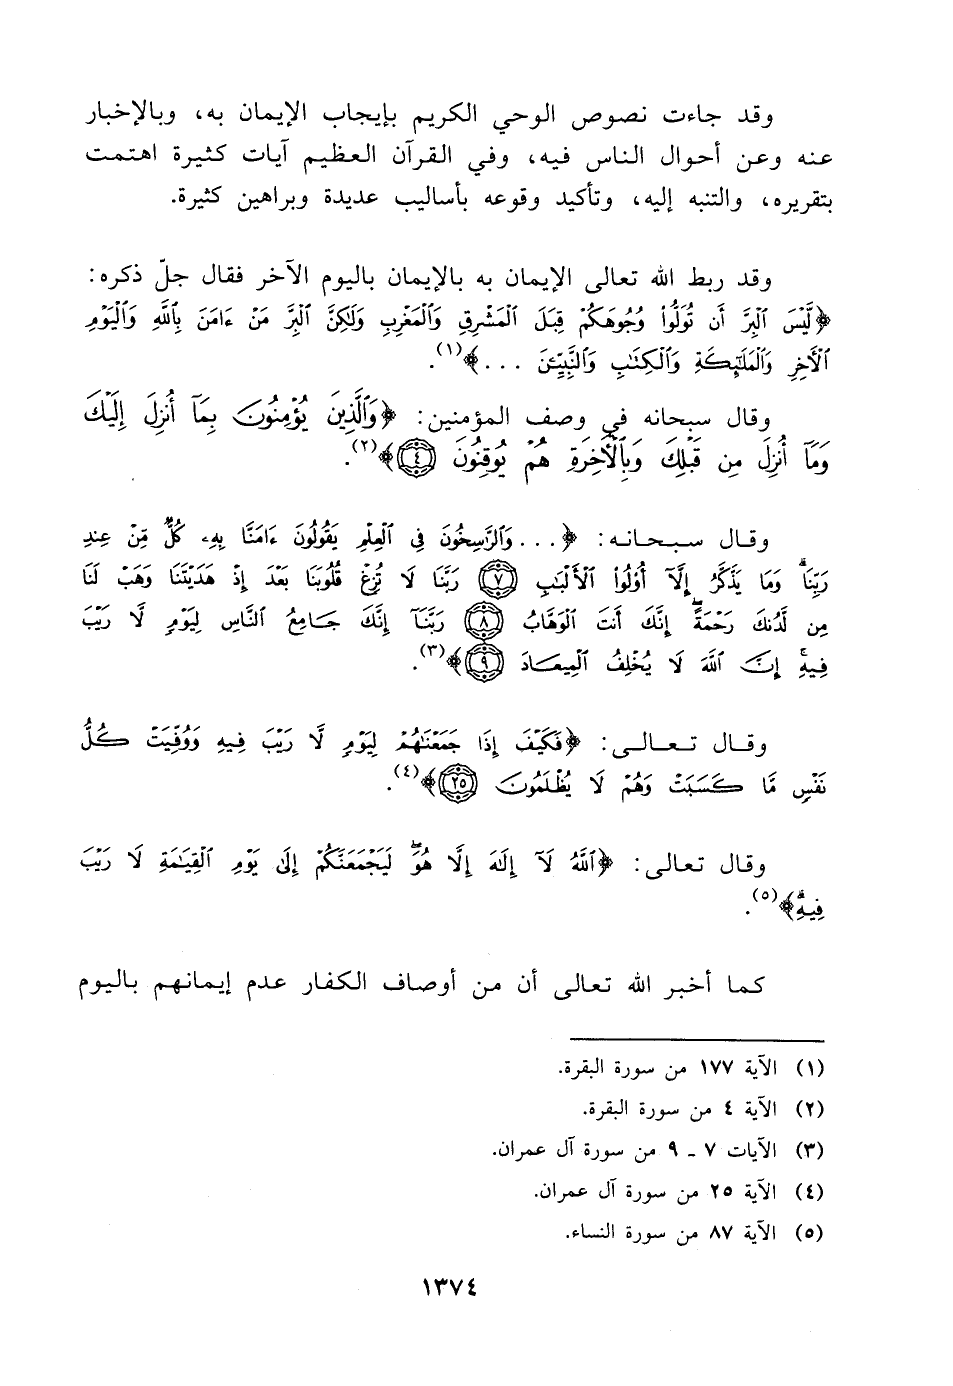 وقد جاءت نصوص الوحي الكريم بإيجاب الإيمان به، وبالإخبار
عنه وعن أحوال الناس فيه، وفي القرآن العظيم آيات كثيرة اهتمت
بتقريره، والتنبه إليه، وتأكيد وقوعه بأساليب عديدة وبراهين كثيرة.
وقد ربط الله تعالى الإيمان به بالإيمان باليوم الآخر فقال جلّ ذكره:
﴿لَّيْسَ ٱلْبِرَّ أَن تُوَلُّوا۟ وُجُوهَكُمْ قِبَلَ ٱلْمَشْرِقِ وَٱلْمَغْرِبِ وَلَـٰكِنَّ ٱلْبِرَّ مَنْ ءَامَنَ بِٱللَّهِ وَٱلْيَوْمِ
ٱلْـَٔاخِرِ وَٱلْمَلَـٰٓئِكَةِ وَٱلْكِتَـٰبِ وَٱلنَّبِيِّـۧنَ ...﴾(١).
وقال سبحانه في وصف المؤمنين: ﴿وَٱلَّذِينَ يُؤْمِنُونَ بِمَآ أُنزِلَ إِلَيْكَ
وَمَآ أُنزِلَ مِن قَبْلِكَ وَبِٱلْـَٔاخِرَةِ هُمْ يُوقِنُونَ ٤﴾(٢).
وقال سبحانه: ﴿... وَٱلرَّٰسِخُونَ فِى ٱلْعِلْمِ يَقُولُونَ ءَامَنَّا بِهِۦ كُلٌّ مِّنْ عِندِ
رَبِّنَا ۗ وَمَا يَذَّكَّرُ إِلَّآ أُو۟لُوا۟ ٱلْأَلْبَـٰبِ ٧ رَبَّنَا لَا تُزِغْ قُلُوبَنَا بَعْدَ إِذْ هَدَيْتَنَا وَهَبْ لَنَا
مِن لَّدُنكَ رَحْمَةً ۚ إِنَّكَ أَنتَ ٱلْوَهَّابُ ٨ رَبَّنَآ إِنَّكَ جَامِعُ ٱلنَّاسِ لِيَوْمٍ لَّا رَيْبَ
فِيهِ ۚ إِنَّ ٱللَّهَ لَا يُخْلِفُ ٱلْمِيعَادَ ٩﴾(٣).
وقال تعالى: ﴿فَكَيْفَ إِذَا جَمَعْنَـٰهُمْ لِيَوْمٍ لَّا رَيْبَ فِيهِ وَوُفِّيَتْ كُلُّ
نَفْسٍ مَّا كَسَبَتْ وَهُمْ لَا يُظْلَمُونَ ٢٥﴾(٤).
وقال تعالى: ﴿ٱللَّهُ لَآ إِلَـٰهَ إِلَّا هُوَ ۚ لَيَجْمَعَنَّكُمْ إِلَىٰ يَوْمِ ٱلْقِيَـٰمَةِ لَا رَيْبَ
فِيهِ ۗ﴾(٥).
كما أخبر الله تعالى أن من أوصاف الكفار عدم إيمانهم باليوم
(١) الآية ١٧٧ من سورة البقرة.
(٢) الآية ٤ من سورة البقرة.
(٣) الآيات ٧ ـ ٩ من سورة آل عمران.
(٤) الآية ٢٥ من سورة آل عمران.
(٥) الآية ٨٧ من سورة النساء.
١٣٧٤